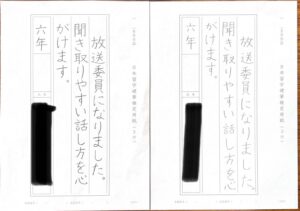 日本習字硬筆検定用紙
放送委員になりました。
聞き取りやすい話し方を心
がけます。
六年
日本習字硬筆検定用紙
放送委員になりました。
聞き取りやすい話し方を心
がけます。
六年